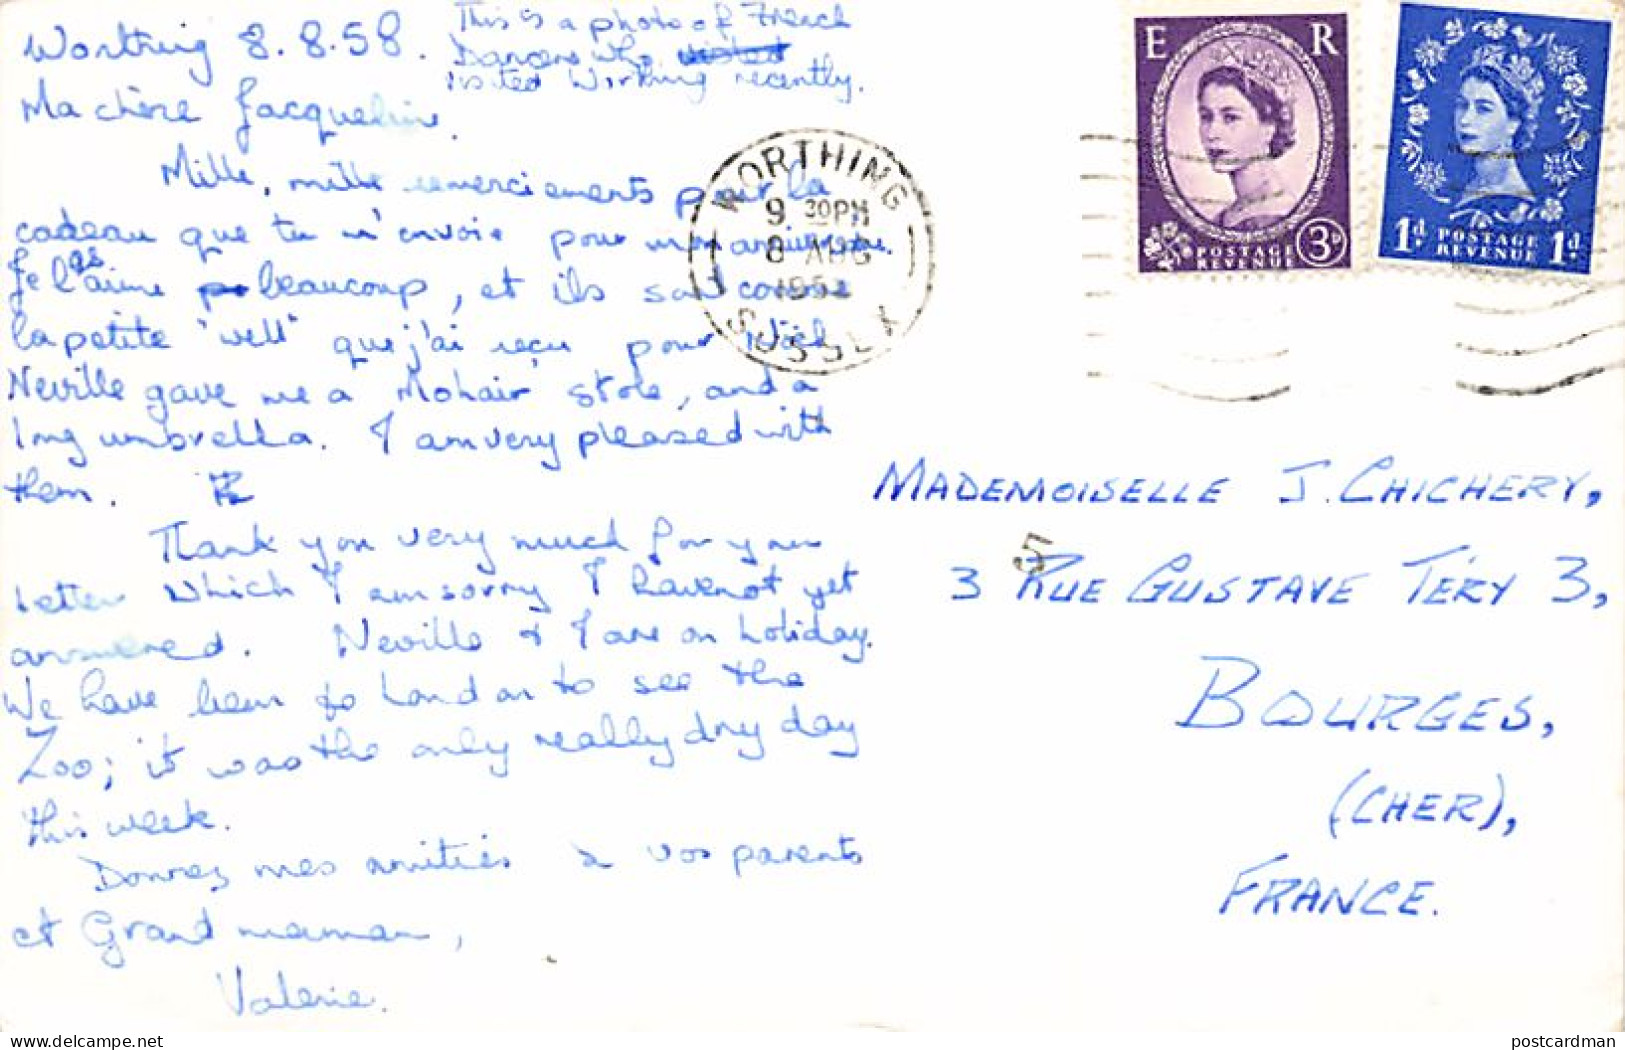 Worthing 8.8.58.
This is a photo of French
Dancers who visited
visited Worthing recently.
Ma chère Jacqueline.
Mille, mille remerciements pour la
cadeau que tu m'envoie pour mon anniversaire.
Je l'as aime beaucoup, et ils sont comme
la petite "well" que j'ai reçu pour Noël
Neville gave me a Mohair stole, and a
long umbrella. I am very pleased with
them.
Thank you very much for your
letter which I am sorry I have not yet
answered. Neville & I are on holiday.
We have been to London to see the
Zoo; it was the only really dry day
this week.
Donnez mes amitiés à vos parents
et Grand maman,
Valerie.
WORTHING
9 30PM
8 AUG
195
SUSSEX
E R
POSTAGE
REVENUE
3D
1d. POSTAGE 1d.
REVENUE
MADEMOISELLE J. CHICHERY,
5
3 RUE GUSTAVE TÉRY 3,
BOURGES,
(CHER),
FRANCE.
https://www.delcampe.net
postcardman